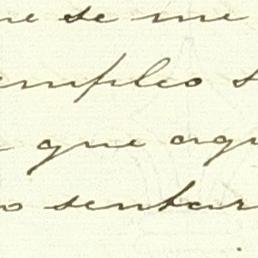 se me
empleo s
que aqu
o sentar